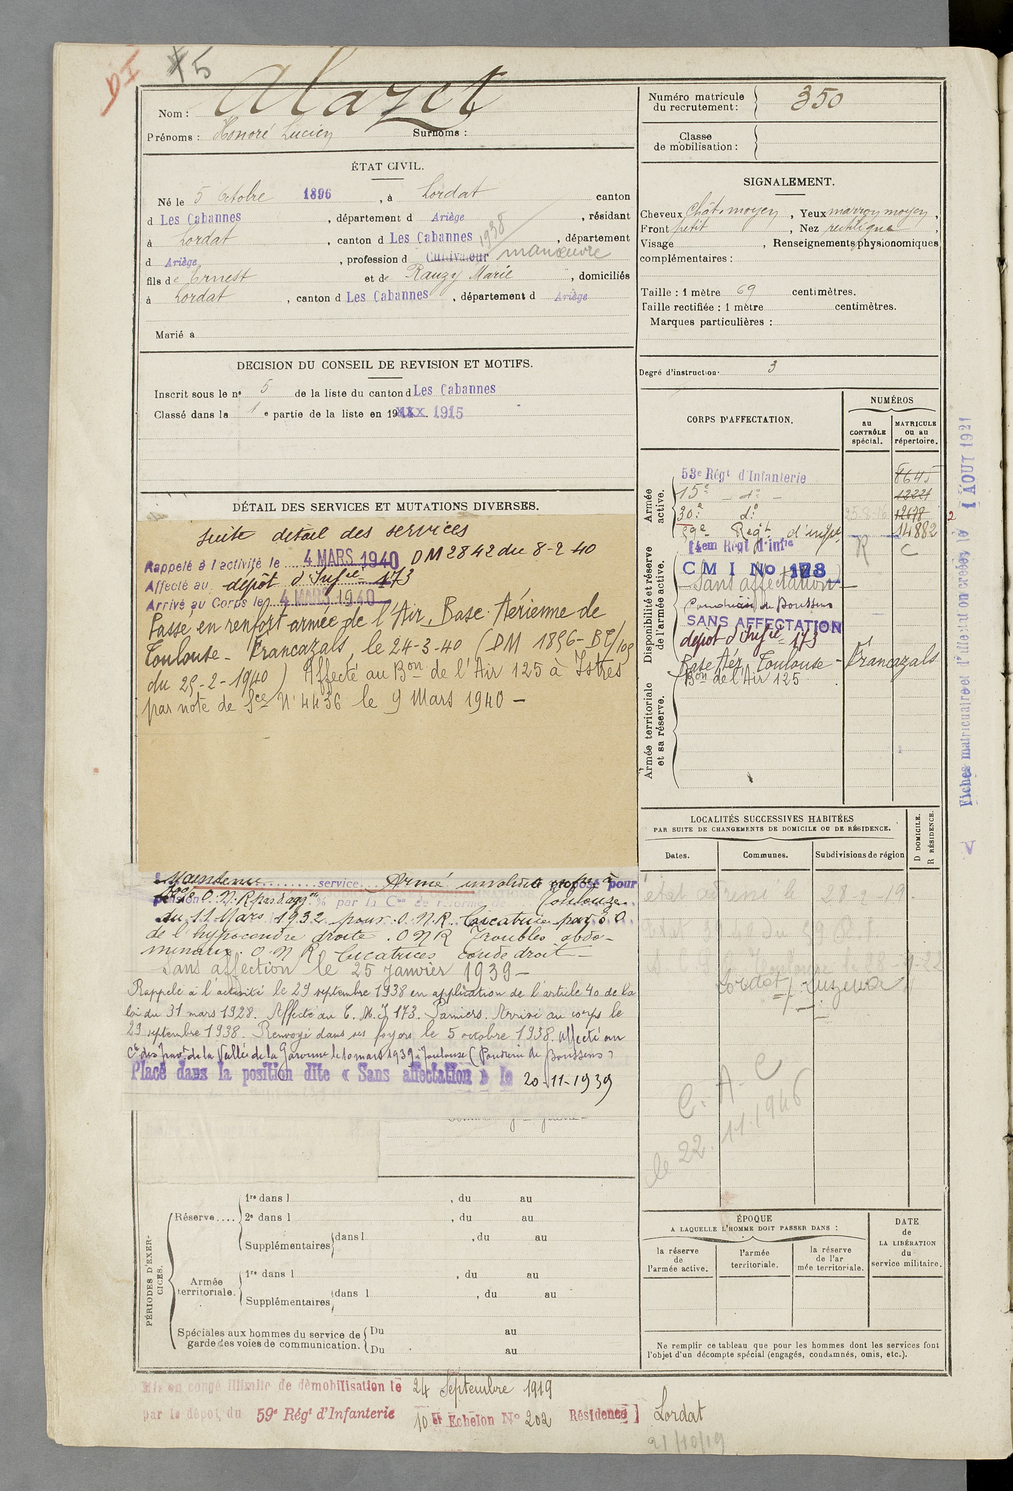 15
Nom : Alazet
Prénoms : Honoré Lucien Surnoms :
ÉTAT CIVIL.
Né le 5 Octobre 1896, à Lordat canton
d Les Cabannes, département d Ariège, résidant
à Lordat, canton d Les Cabannes, département
d Ariège, profession d Cultivateur 1938 manœuvre
fils de Ernest et de Rauzy Marie, domiciliés
à Lordat, canton d Les Cabannes, département d Ariège
Marié à
DÉCISION DU CONSEIL DE REVISION ET MOTIFS.
Inscrit sous le n° 5 de la liste du canton d Les Cabannes
Classé dans la 1e partie de la liste en 19 1915
DÉTAIL DES SERVICES ET MUTATIONS DIVERSES.
Suite détail des services
Rappelé à l'activité le 4 MARS 1940 DM 2842 du 8-2-40
Affecté au dépôt d'Infie 173
Arrivé au Corps le 4 MARS 1940
Passé en renfort armée de l'Air, Base Aérienne de
Toulouse - Francazals, le 24-3-40 (DM 1896-BP/
du 29-2-1940) Affecté au Bon de l'Air 125 à Istres
par note de Sce N° 4436 le 9 Mars 1940 -
Maintenu service armé invalidité pour
pension
du 11 Mars 1932 pour O.N.R. Cicatrice par
de l'hypocondre droite. O N R Troubles abdo-
minaux. O N R Cicatrices coude droit -
Sans affection le 25 Janvier 1939 -
Rappelé à l'activité le 29 septembre 1938 en application de l'article 40 de la
loi du 31 mars 1928. Affecté au C.M.I 173. Pamiers. Arrivé au corps le
29 septembre 1938. Renvoyé dans ses foyers le 5 octobre 1938. Affecté au
de la Vallée de la Garonne le 10 mars 1939 à Toulouse (Poudrerie de Boussens)
Placé dans la position dite « Sans affectation » le 20-11-1939
PÉRIODES D'EXERCICES.
Réserve....
1re dans l , du au
2e dans l , du au
Supplémentaires dans l , du au
Armée territoriale.
1re dans l , du au
Supplémentaires dans l , du au
Spéciales aux hommes du service de garde des voies de communication.
Du au
Du au
Mis en congé illimité de démobilisation le 24 Septembre 1919
par le dépôt du 59e Régt d'Infanterie 10 Echelon N° 202 Résidence] Lordat
21/10/19
Numéro matricule du recrutement : 350
Classe de mobilisation :
SIGNALEMENT.
Cheveux Chât. moyen, Yeux marron moyen,
Front petit, Nez rectiligne
Visage , Renseignements physionomiques
complémentaires :
Taille : 1 mètre 69 centimètres.
Taille rectifiée : 1 mètre centimètres.
Marques particulières :
Degré d'instruction. 3
CORPS D'AFFECTATION.
NUMÉROS
au CONTRÔLE spécial.
MATRICULE ou au répertoire.
Armée active.
53e Régt d'Infanterie
15e - d° -
30e d°
59e Régt d'infie 14882
Disponibilité et réserve de l'armée active.
14em Régt d'Infie R C
C M I No 173
Sans affectation
Poudrerie de Boussens
SANS AFFECTATION
dépôt d'Infie 173
Base Aér. Toulouse - Francazals
Bon de l'Air 125
Armée territoriale et sa réserve.
LOCALITÉS SUCCESSIVES HABITÉES
PAR SUITE DE CHANGEMENTS DE DOMICILE OU DE RÉSIDENCE.
Dates.
Communes.
Subdivisions de région
D DOMICILE.
R RÉSIDENCE.
28-2-19
Lordat / Luzenac
C. A. C
le 22.11.1946
ÉPOQUE
A LAQUELLE L'HOMME DOIT PASSER DANS :
la réserve de l'armée active.
l'armée territoriale.
la réserve de l'armée territoriale.
DATE de LA LIBÉRATION du service militaire.
Ne remplir ce tableau que pour les hommes dont les services font
l'objet d'un décompte spécial (engagés, condamnés, omis, etc.).
Fiches matriculaire et d'affectation créées le 1 AOUT 1921